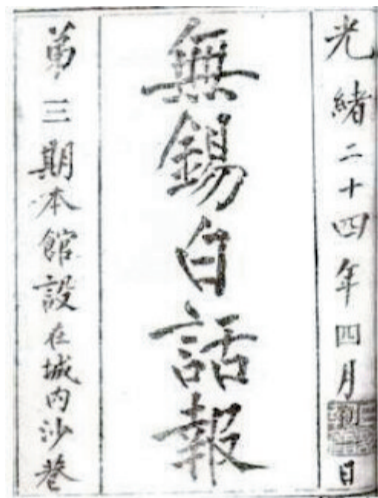 光緒二十四年四月初一日
無錫白話報
第三期本館設在城內沙巷